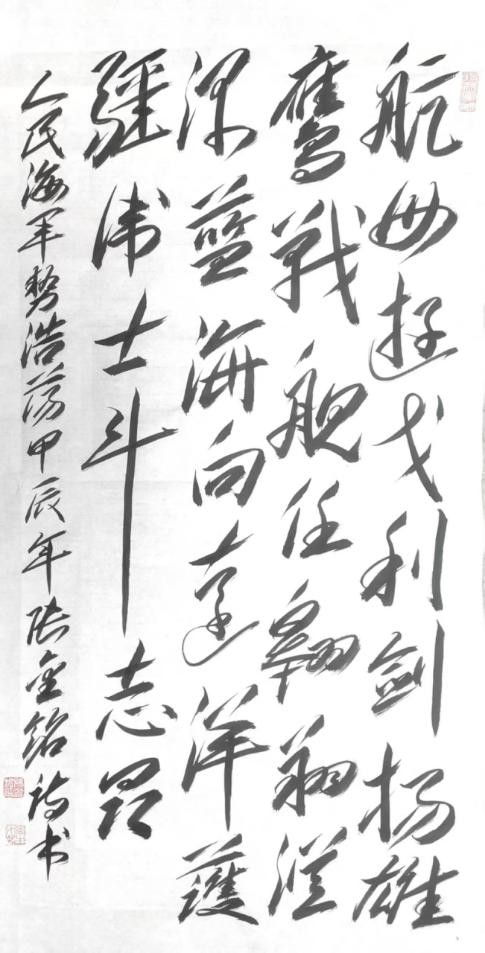 航母挺戈利剑扬雄
鹰战舰任翱翔從
深蓝海向远洋護
疆卫士斗志昂
人民海军势浩荡甲辰年金铭诗书